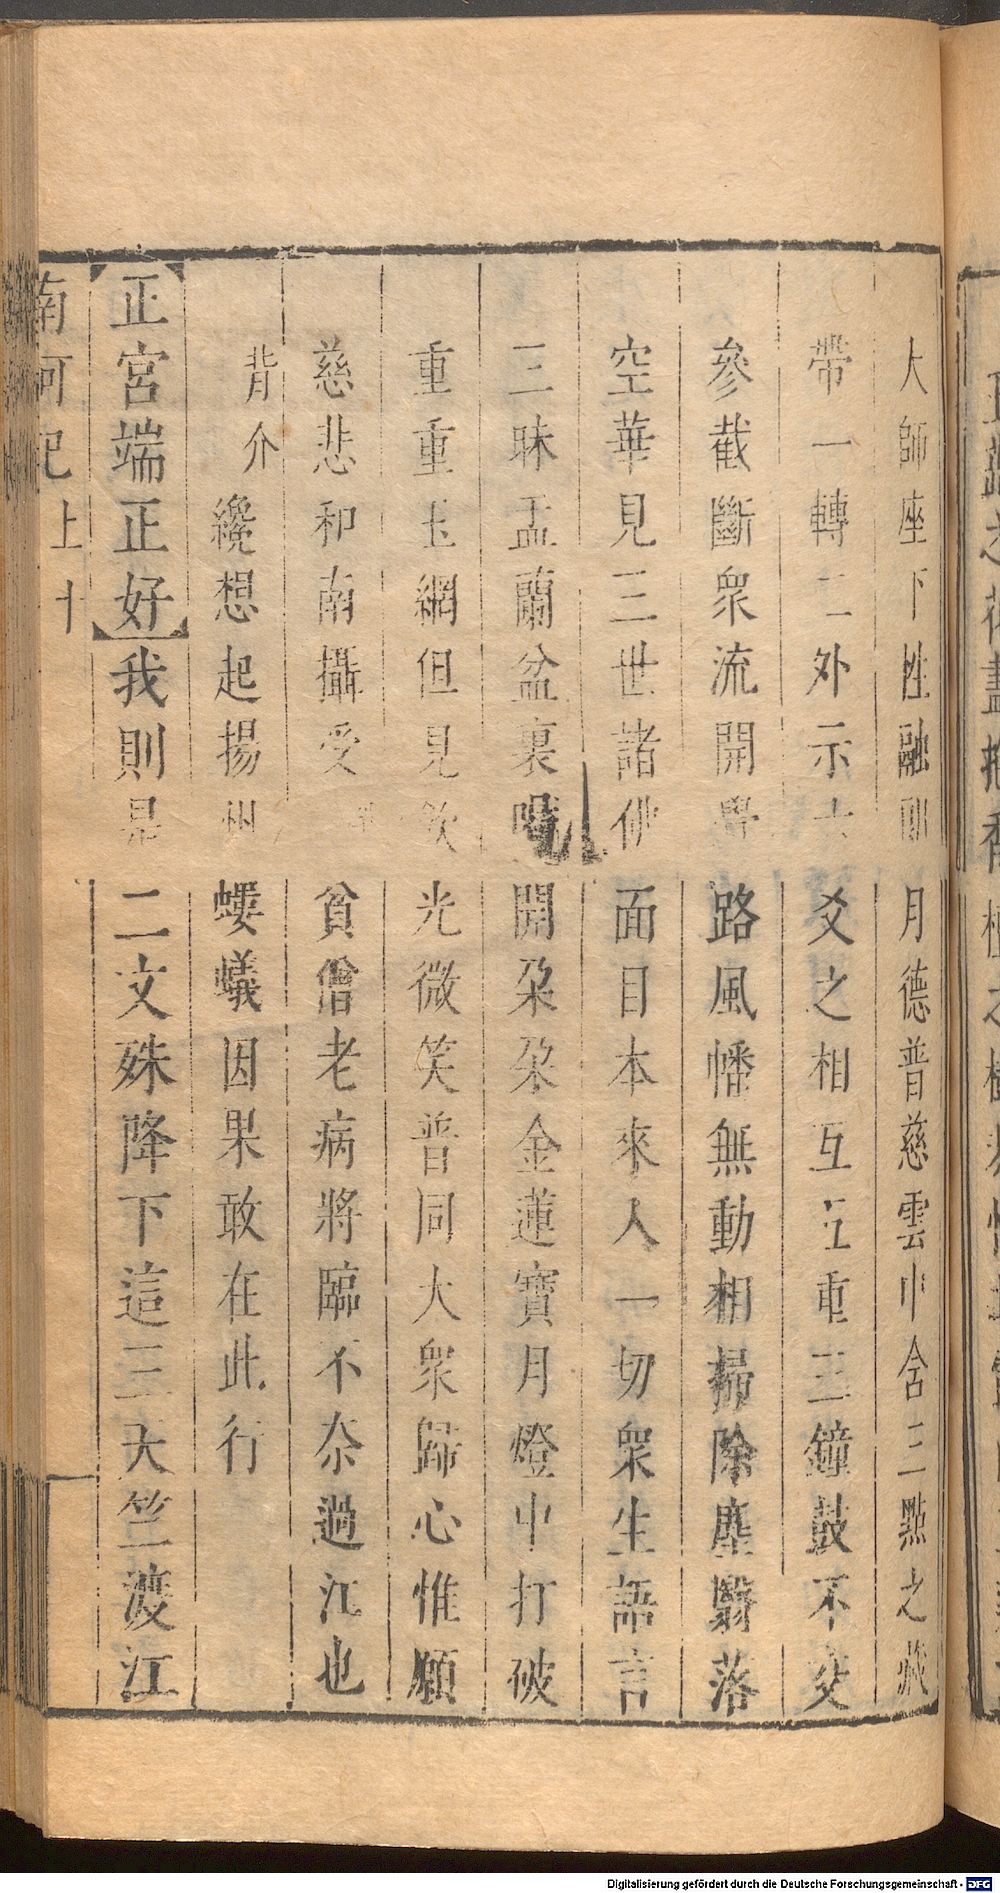 大師座下性融圓月德普慈雲中含三點之
帶一轉二外示六爻之相互五重三鐘鼓不交
參截斷衆流開覺路風幡無動相掃除塵翳落
空華見三世諸佛面目本來人一切衆生語言
三昧盂蘭盆裏開朶朶金蓮寶月燈中打破
重重玉網但見欽光微笑普同大衆歸心惟願
慈悲和南攝受貧僧老病將臨不奈過江也
背介纔想起揚州螻蟻因果敢在此行
【正宮端正好】我則是二文殊降下這三天竺渡江
南柯記上十
Digitalisierung gefördert durch die Deutsche Forschungsgemeinschaft - DFG